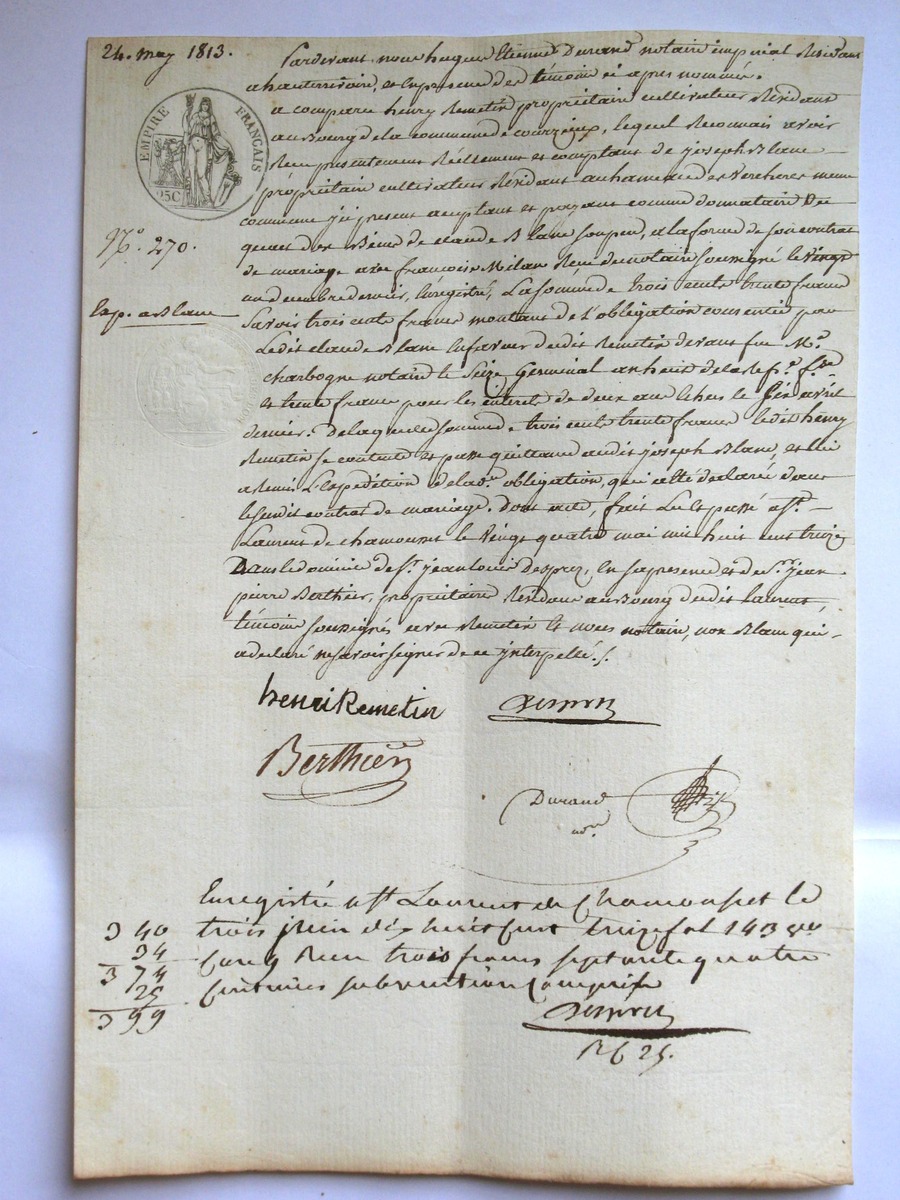 24. may 1813.
Pardevant nous hugue Etienne Durand notaire impérial Résidant
a hauterivoire, et en presence des témoins ci apres nommés.
a comparu henry Remetin propriétaire cultivateur Résidant
au Bourg de la commune de courzieux, lequel Reconnais avoir
Reçu présentement Réellement et comptant de joseph Blanc
propriétaire cultivateur Résidant a hameau des vercheres meme
commune ici present acceptant et payant comme donnataire du
quart des Biens de claude Blanc son pere, a la forme de son contrat
de mariage avec françoise Milan Reçu de notaire soussigné le vingt
un decembre dernier, Enregistré, La somme de trois cents trente francs
Savoir trois cents francs montant de L'obligation consentie par
Ledit claude Blanc En faveur dudit Remetin devant feu Me.
charbogne notaire le Seize Germinal an huit de la Rep. fse
et trente francs pour les interets de deux ans Echus le Six avril
dernier. De laquelle somme de trois cents trente francs ledit henry
Remetin se contente et passe quittance audit joseph Blanc, et lui
a Remis L'Expedition de lad. obligation, qui a été déclarée dans
le susdit contrat de mariage. Dont acte, fait Lu et passé a St.
Laurent de chamousset le vingt quatre mai mil huit cent treize
Dans le domicile de Sr. jean Louis Desprez, En sa presence et de Sr. jean
pierre Berthier, propriétaires Résidant au Bourg dudit Laurent,
témoins soussignés avec Remetin Et nous notaire, non Blanc qui
a declaré ne savoir signer de ce interpellé ./.
EMPIRE FRANÇAIS
25C
No. 270.
Exp. a Blanc
henri Remetin
Desprez
Berthier
Durand
nore
Enregistré a St Laurent de Chamousset le
trois juin dix huit cent treize fol 143 vo
Case 9 Reçu trois francs septante quatre
centimes subvention Comprise
Desprez
3 40
34
3 74
25
3 99
25.